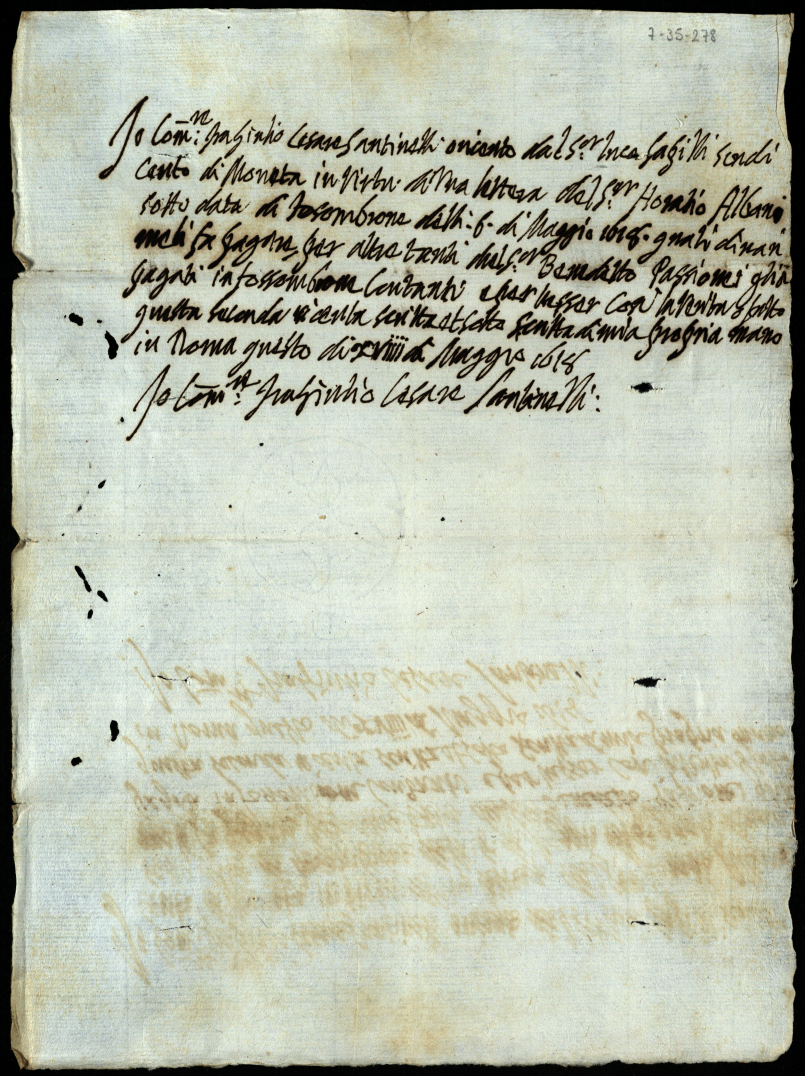 7-35-278
Jo Com.re fra Giulio Cesare Santinelli ò riceuto dal S.or Luca scudi
Cento di Moneta in virtu di una lettera del S.or Horatio Albani
sotto data di fosombrone delli 6 di Maggio 1618 quali dinari
me li fa pagare per altre tanti dal S.or Benedetto Passionei
pagati in fossombrone Contanti e per esser Cosi la verita ò fatto
questa seconda riceuta scritta et sotto scritta di mia propria mano
in Roma questo di xviiii di Maggio 1618
Jo Com.re fra Giulio Cesare Santinelli: